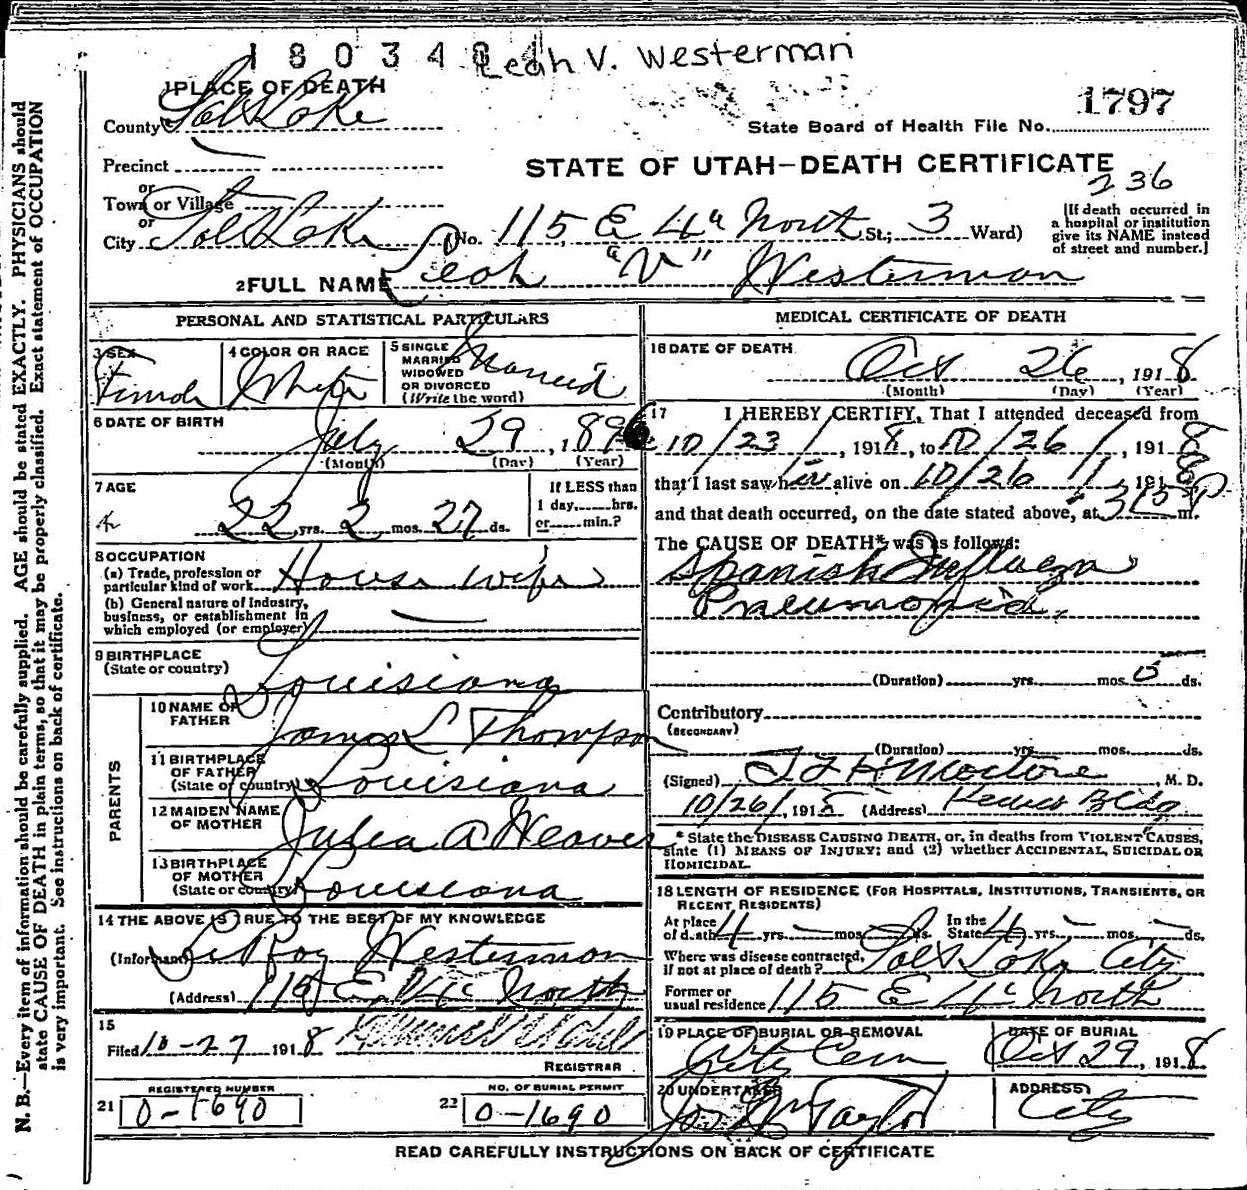 1803484
Leah V. Westerman
1 PLACE OF DEATH
1797
County Salt Lake
State Board of Health File No.
Precinct
STATE OF UTAH—DEATH CERTIFICATE
or
236
Town or Village
or
City Salt Lake No. 115 E 4th North St.; 3 Ward)
[If death occurred in a hospital or institution give its NAME instead of street and number.]
2 FULL NAME Leah "V" Westerman
PERSONAL AND STATISTICAL PARTICULARS
3 SEX Female
4 COLOR OR RACE White
5 SINGLE MARRIED WIDOWED OR DIVORCED (Write the word) Married
6 DATE OF BIRTH July 29, 1896
(Month) (Day) (Year)
7 AGE 22 yrs. 2 mos. 27 ds.
If LESS than 1 day,......hrs. or......min.?
8 OCCUPATION
(a) Trade, profession or particular kind of work House wife
(b) General nature of Industry, business, or establishment in which employed (or employer)
9 BIRTHPLACE (State or country) Louisiana
PARENTS
10 NAME OF FATHER James L Thompson
11 BIRTHPLACE OF FATHER (State or country) Louisiana
12 MAIDEN NAME OF MOTHER Julia A Weaver
13 BIRTHPLACE OF MOTHER (State or country) Louisiana
14 THE ABOVE IS TRUE TO THE BEST OF MY KNOWLEDGE
(Informant) LeRoy Westerman
(Address) 115 E 4th North
15
Filed 10-27 1918
REGISTRAR
REGISTERED NUMBER
21 0-1690
NO. OF BURIAL PERMIT
22 0-1690
MEDICAL CERTIFICATE OF DEATH
16 DATE OF DEATH
Oct 26, 1918
(Month) (Day) (Year)
17 I HEREBY CERTIFY, That I attended deceased from
10/23/, 1918, to 10/26/, 1918
that I last saw her alive on 10/26/, 1918
and that death occurred, on the date stated above, at 315 P m.
The CAUSE OF DEATH* was as follows:
Spanish Influenza
Pneumonia.
(Duration) yrs. mos. 5 ds.
Contributory
(SECONDARY)
(Duration) yrs. mos. ds.
(Signed) M. D.
10/26/, 1918 (Address) Bldg.
* State the DISEASE CAUSING DEATH, or, in deaths from VIOLENT CAUSES, state (1) MEANS OF INJURY; and (2) whether ACCIDENTAL, SUICIDAL OR HOMICIDAL.
18 LENGTH OF RESIDENCE (FOR HOSPITALS, INSTITUTIONS, TRANSIENTS, OR RECENT RESIDENTS)
At place of death 4 yrs. – mos. – ds. In the State 4 yrs. – mos. – ds.
Where was disease contracted, if not at place of death? Salt Lake City
Former or usual residence 115 E 4th North
19 PLACE OF BURIAL OR REMOVAL City Cem
DATE OF BURIAL Oct 29, 1918
20 UNDERTAKER Jos Wm Taylor
ADDRESS City
READ CAREFULLY INSTRUCTIONS ON BACK OF CERTIFICATE
N. B.—Every item of information should be carefully supplied. AGE should be stated EXACTLY. PHYSICIANS should
state CAUSE OF DEATH in plain terms, so that it may be properly classified. Exact statement of OCCUPATION
is very important. See instructions on back of certificate.